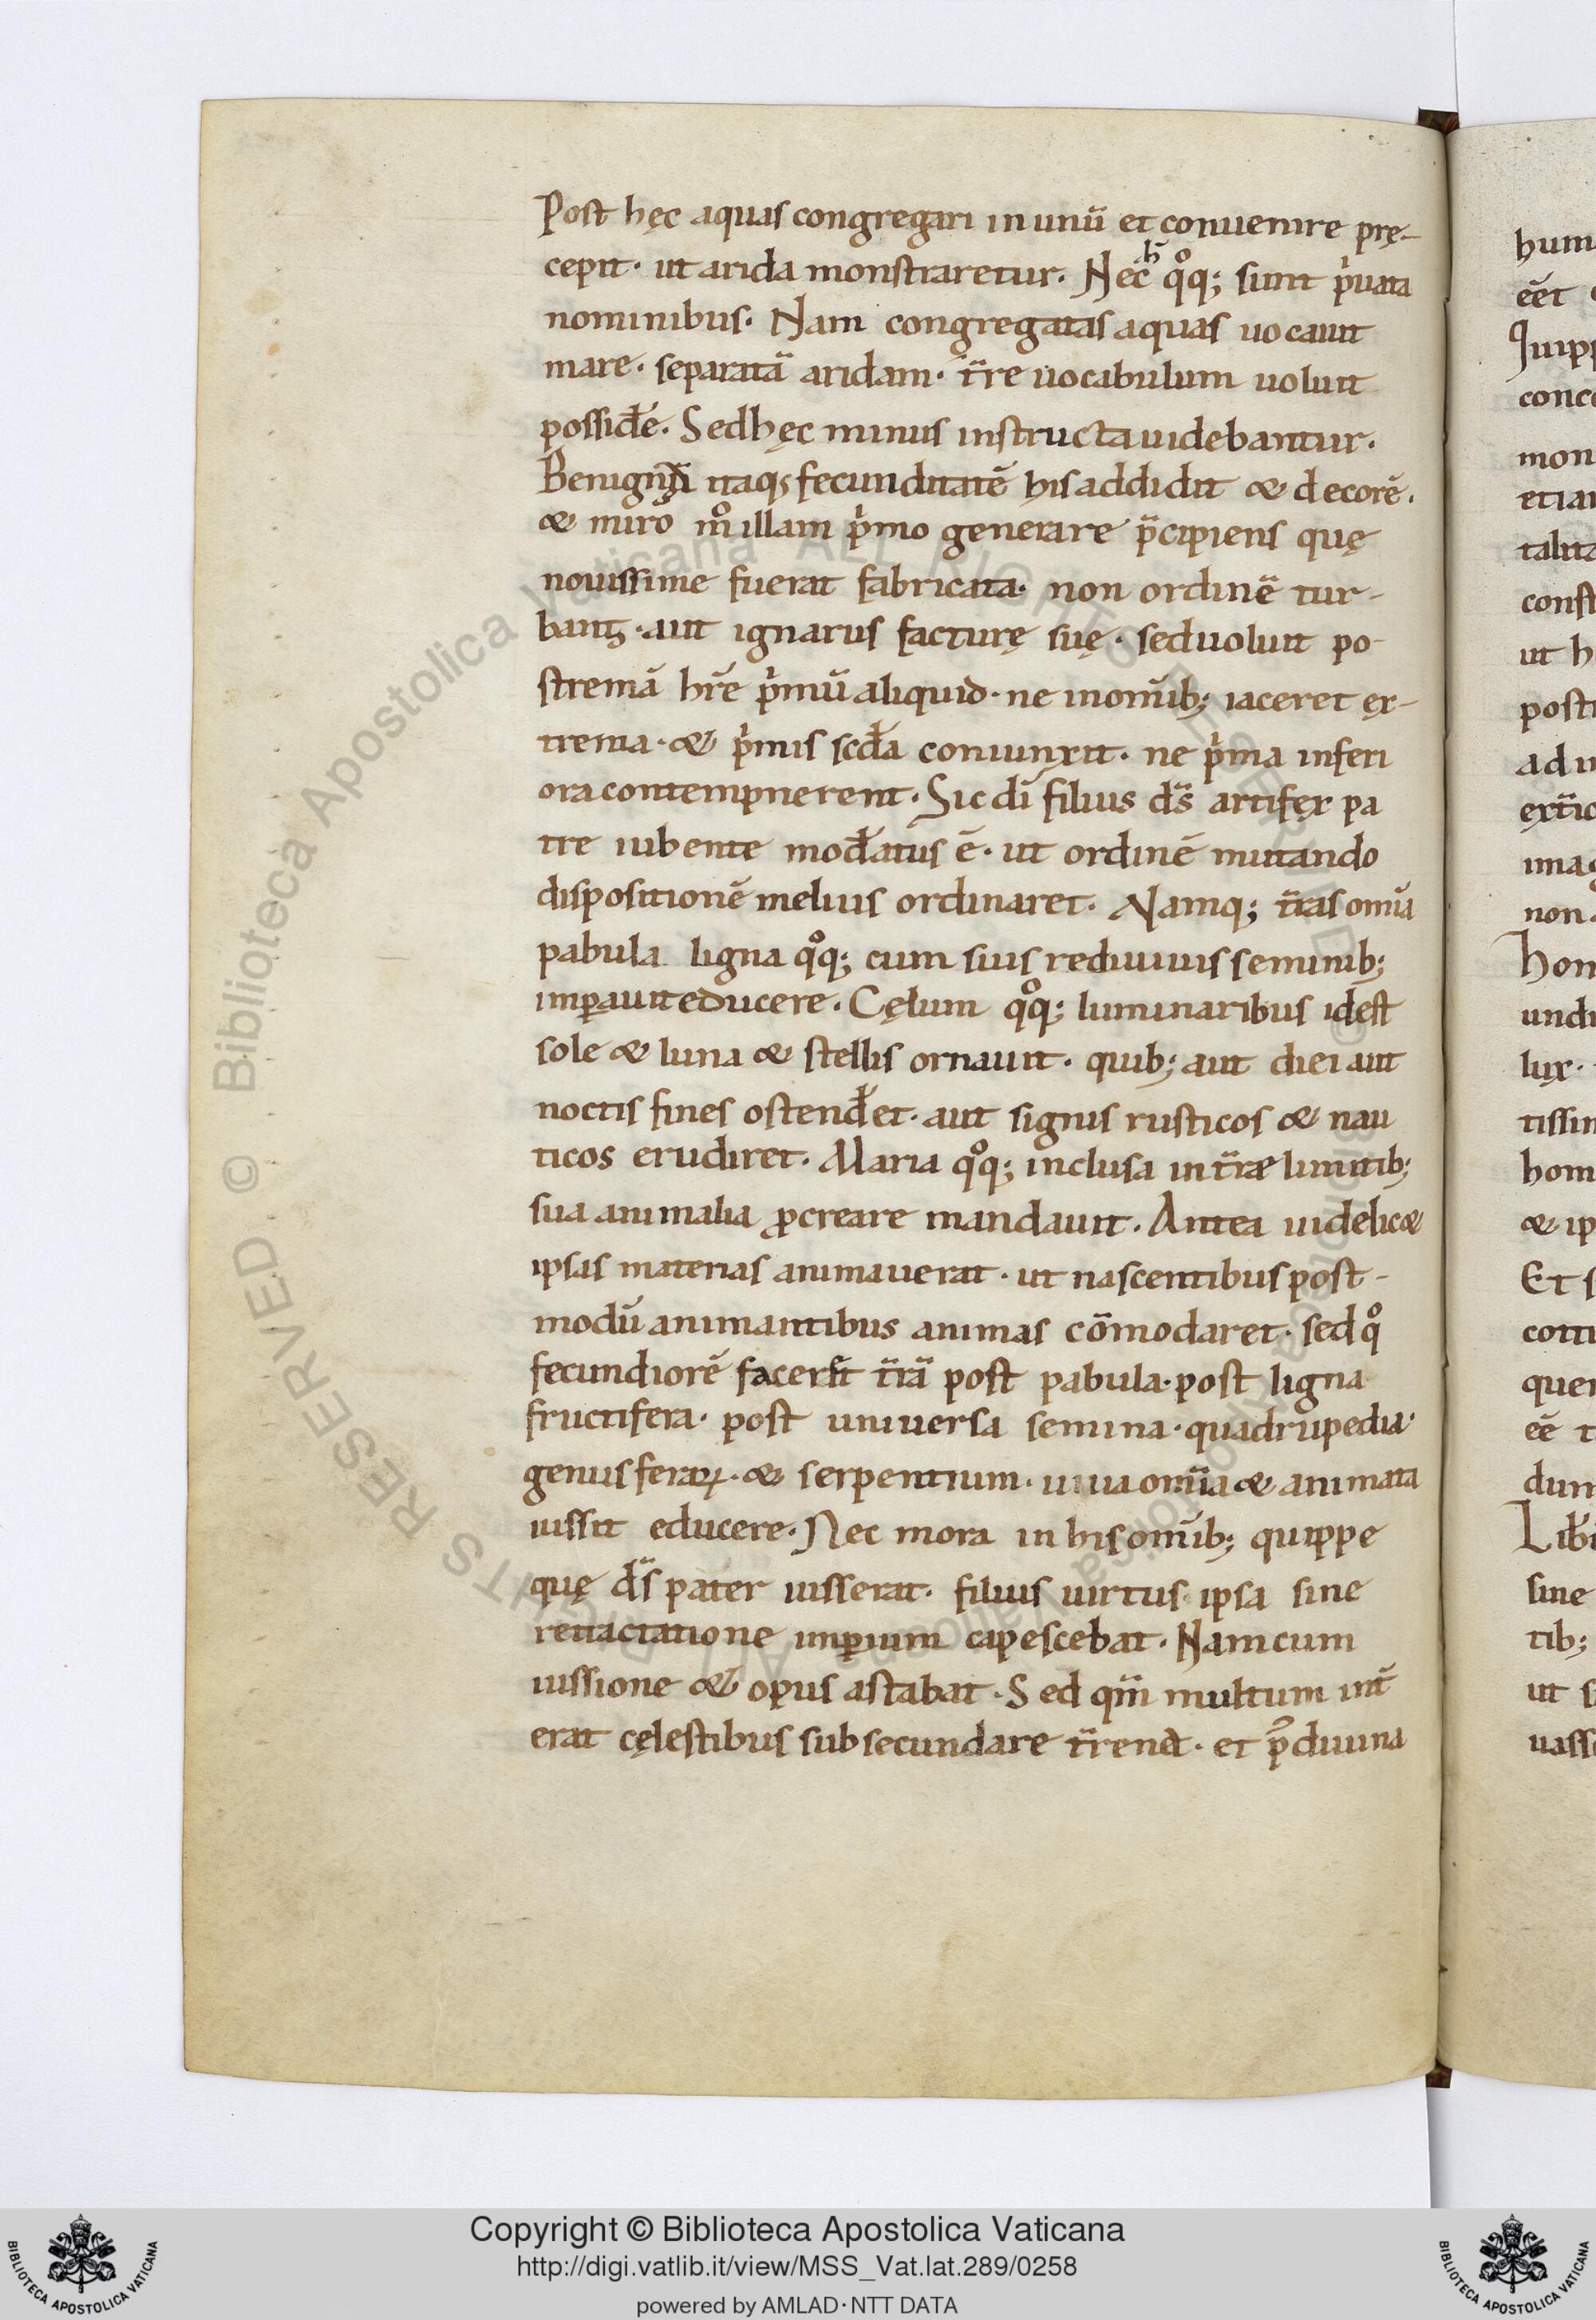 Post hęc aquas congregari in unū et conuenire prę-
cepit· ut arida monstraretur. Nec h̄ qͦq; sunt pⁱuata
nominibus. Nam congregatas aquas uocauit
mare· separatā aridam· t̄re uocabulum uoluit
possid̄e. Sed hęc minus instructa uidebantur.
itaq; fecunditatē his addidit & decorē.
& miro mͦ illam pⁱmo generare p̄cipiens quę
nouissime fuerat fabricata· non ordinē tur-
bant· aut ignarus facturę suę· sed uoluit po-
stremā hr̄e pⁱmū aliquid· ne in om̄ib; iaceret ex-
trema· & pⁱmis scd̄a coniunxit· ne pⁱma inferi
ora contempnerent. Sic dī filius d̄s artifex pa
tre iubente mod̄atus ē· ut ordinē mutando
dispositionē melius ordinaret. Namq; t̄ras om̄ia
pabula ligna qͦq; cum suis rediuiuis seminib;
imꝑauit educere. Cęlum qͦq; luminaribus idest
sole & luna & stellis ornauit· quib; aut diei aut
noctis fines ostend̄et· aut signis rusticos & nau
ticos erudiret. Maria qͦq; inclusa in t̄ræ limitib;
sua animalia ꝓcreare mandauit. Antea uidelic&
ipsas materias animauerat· ut nascentibus post-
modū animantibus animas cōmodaret· sed qͦ
fecundiorē facer& t̄rā post pabula· post ligna
fructifera· post uniuersa semina· quadrupedia·
genus feraꝝ· & serpentium· uiua om̄ia & animata
iussit educere. Nec mora in his om̄ib; quippe
quę d̄s pater iusserat· filius uirtus ipsa sine
retractatione imꝑium capescebat. Nam cum
iussione & opus astabat. Sed qm̄ multum int̄
erat cęlestibus sub secundare t̄rena· et p̄ diuina
hum
eēt
quipp
conc
mon
etiam
talita
const
ut h
post
ad
imag
non
hom
und
lux·
tissim
hom
& ip
Et s
cotti
quem
eē t
dum
Lib
sine
tib;
ut s
uass
© Biblioteca Apostolica Vaticana ALL RIGHTS RESERVED
© Biblioteca Apostolica Vaticana ALL RIGHTS RESERVED
Copyright © Biblioteca Apostolica Vaticana
http://digi.vatlib.it/view/MSS_Vat.lat.289/0258
powered by AMLAD·NTT DATA
BIBLIOTECA APOSTOLICA VATICANA
BIBLIOTECA APOSTOLICA VATICANA